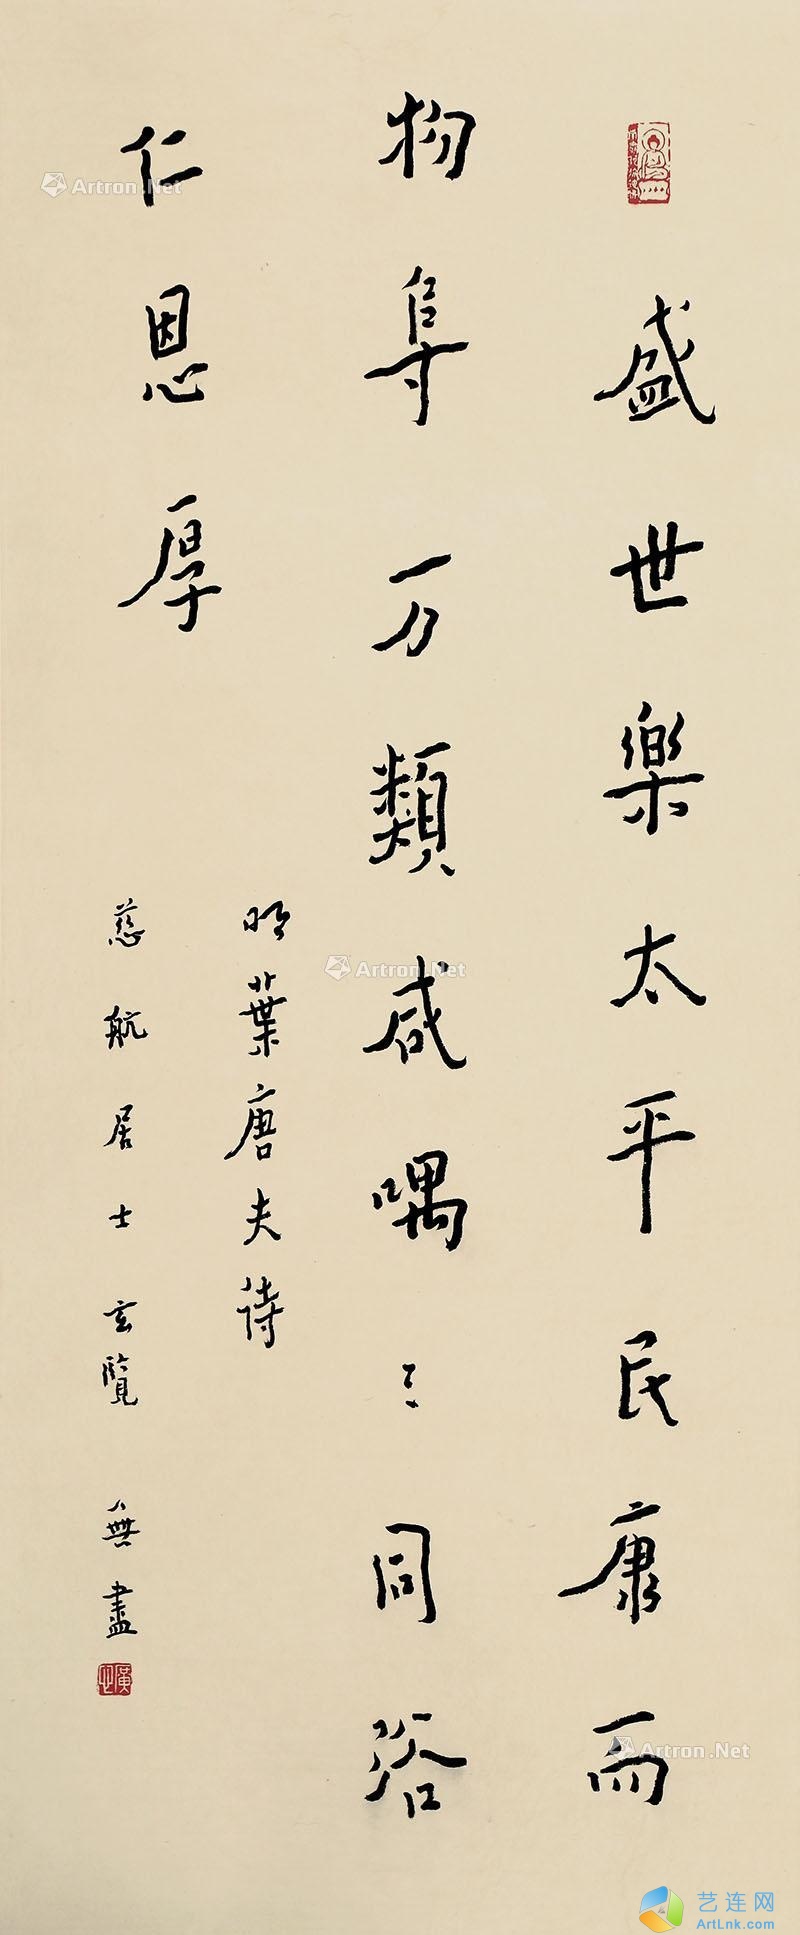 盛世樂太平民康而
物阜万類咸喁〻同浴
仁恩厚
明葉唐夫詩
慈航居士玄覽 無盡
Artron.Net
Artron.Net
Artron.Net
艺连网
ArtLnk.com